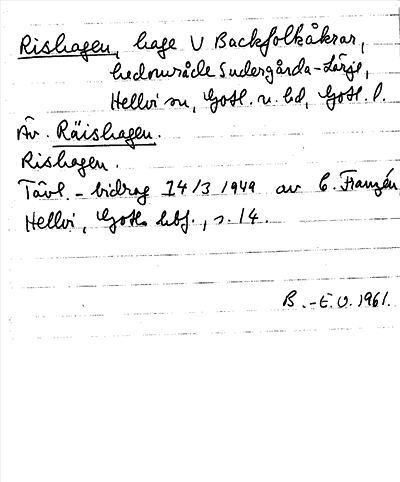 Rishagen, hage V Backfolkåkrar,
hedområde Sudergårda-Lärje,
Hellvi sn, Gotl. n. hd, Gotl. l.
Äv. Räishagen.
Rishagen.
Tävl.-bidrag 14/3 1949 av C. Franzén
Hellvi, Gotl. hbf., s. 14.
B.-E. O. 1961.